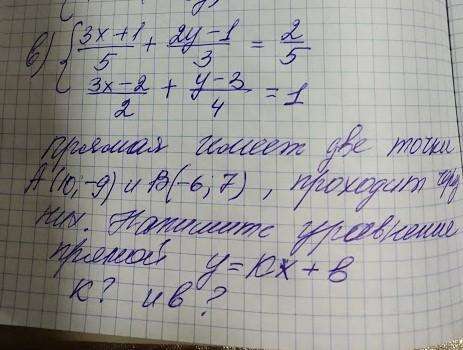 в) { (3x+1)/5 + (2y-1)/3 = 2/5
(3x-2)/2 + (y-3)/4 = 1
прямая имеет две точки
А(10;-9) и В(-6;7), проходит чрез
них. Напишите уравнение
прямой y=kx+в
к? и в?